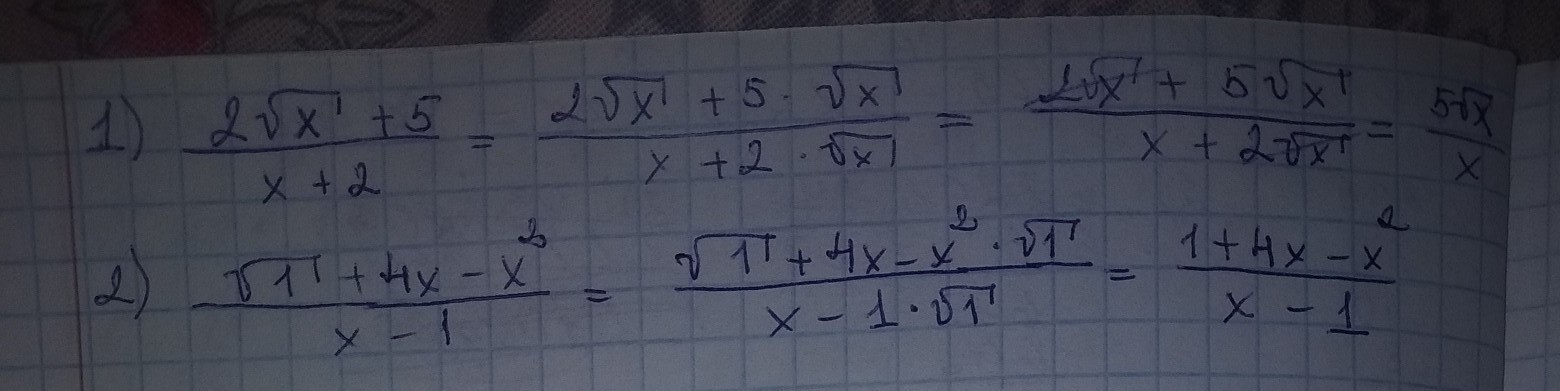 1) (2√x + 5)/(x + 2) = (2√x + 5 · √x)/(x + 2 · √x) = (2√x + 5√x)/(x + 2√x) = 5√x/x
2) (√1 + 4x - x²)/(x - 1) = (√1 + 4x - x² · √1)/(x - 1 · √1) = (1 + 4x - x²)/(x - 1)